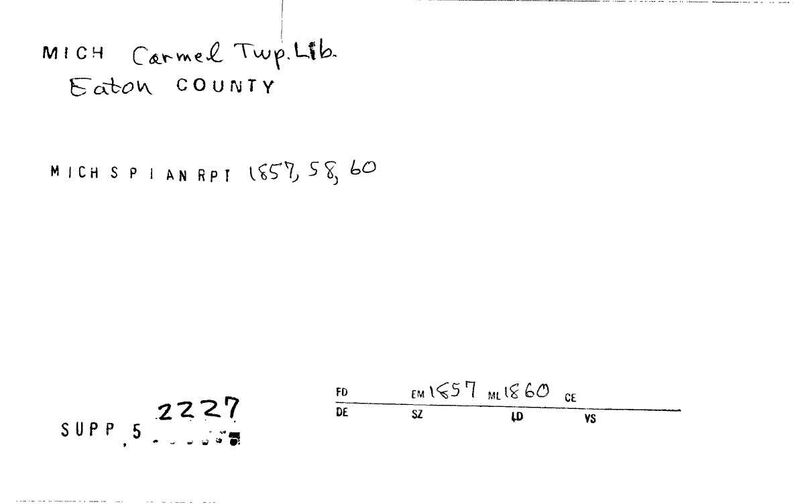 MICH Carmel Twp. Lib.
Eaton COUNTY
MICH S P I AN RPT 1857, 58, 60
2227
SUPP. 5
FD EM 1857 ML 1860 CE
DE SZ LD VS